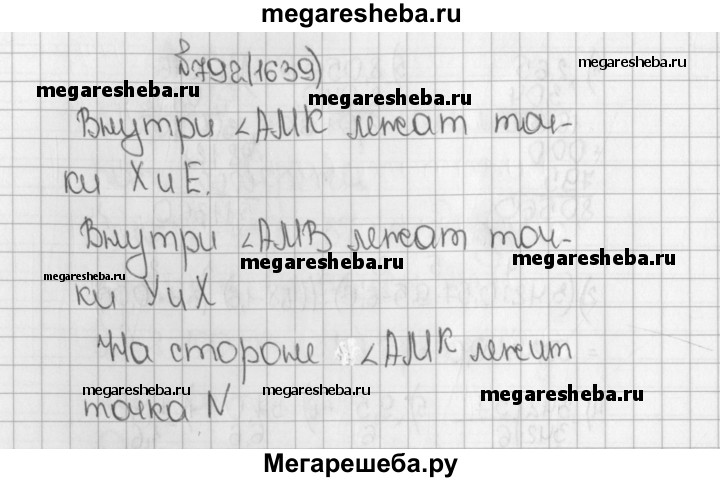 megaresheba.ru
№792(1639)
megaresheba.ru
megaresheba.ru
megaresheba.ru
Внутри ∠АМК лежат точ-
ки Х и Е.
Внутри ∠АМВ лежат точ-
megaresheba.ru
megaresheba.ru
megaresheba.ru
ки У и Х
На стороне ∠АМК лежит
megaresheba.ru
megaresheba.ru
megaresheba.ru
точка N
Мегарешеба.ру